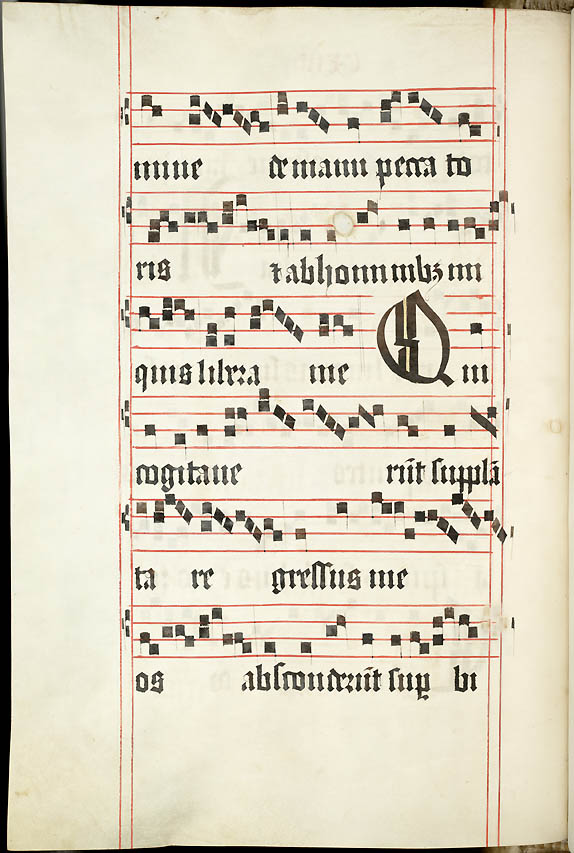 mine de manu pecca to
ris ⁊ abhominibꝫ ini
quis libera me Qui
cogitaue rūt supplā
ta re gressus me
os absconderūt suꝑ bi